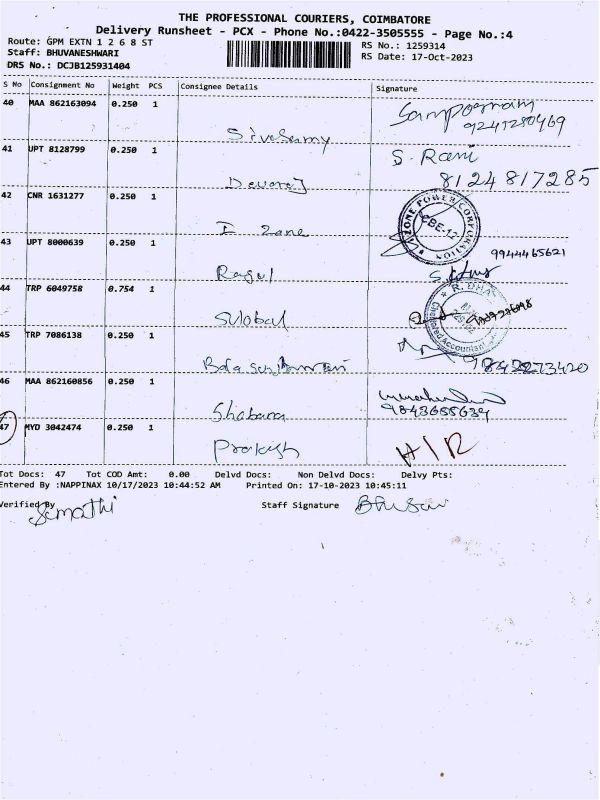 THE PROFESSIONAL COURIERS, COIMBATORE
Delivery Runsheet - PCX - Phone No.:0422-3505555 - Page No.:4
Route: GPM EXTN 1 2 6 8 ST
RS No.: 1259314
Staff: BHUVANESHWARI
RS Date: 17-Oct-2023
DRS No.: DCJB125931404
S No Consignment No Weight PCS Consignee Details Signature
40 MAA 862163094 0.250 1
Sivasamy
41 UPT 8128799 0.250 1 S. Rani
8124817285
Devaraj
42 CNR 1631277 0.250 1 I ZONE POWER CORPORATION
CBE-12
I Zone
43 UPT 8000639 0.250 1 9944465621
Ragul
44 TRP 6049758 0.754 1 R. DHA
Chartered Accountant
Global
45 TRP 7086138 0.250 1
46 MAA 862160856 0.250 1
9843655639
Shabana
47 MYD 3042474 0.250 1
Prakash
Tot Docs: 47 Tot COD Amt: 0.00 Delvd Docs: Non Delvd Docs: Delvy Pts:
Entered By :NAPPINAX 10/17/2023 10:44:52 AM Printed On: 17-10-2023 10:45:11
Verified By Staff Signature